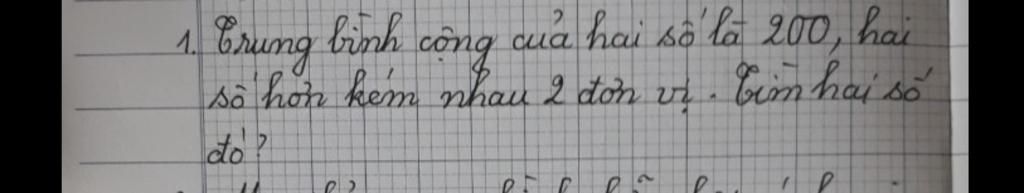 1. Trung bình cộng của hai số là 200, hai
số hơn kém nhau 2 đơn vị. Tìm hai số
đó?